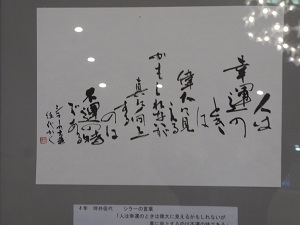 人は
幸運の
とき
は
偉大に見
える
かもしれないが
真に向上
する
のは
不運の時
である
シラーの言葉
佳代かく
4年 シラーの言葉
「人は幸運のときは偉大に見えるかもしれないが
真に向上するのは不運の時である」